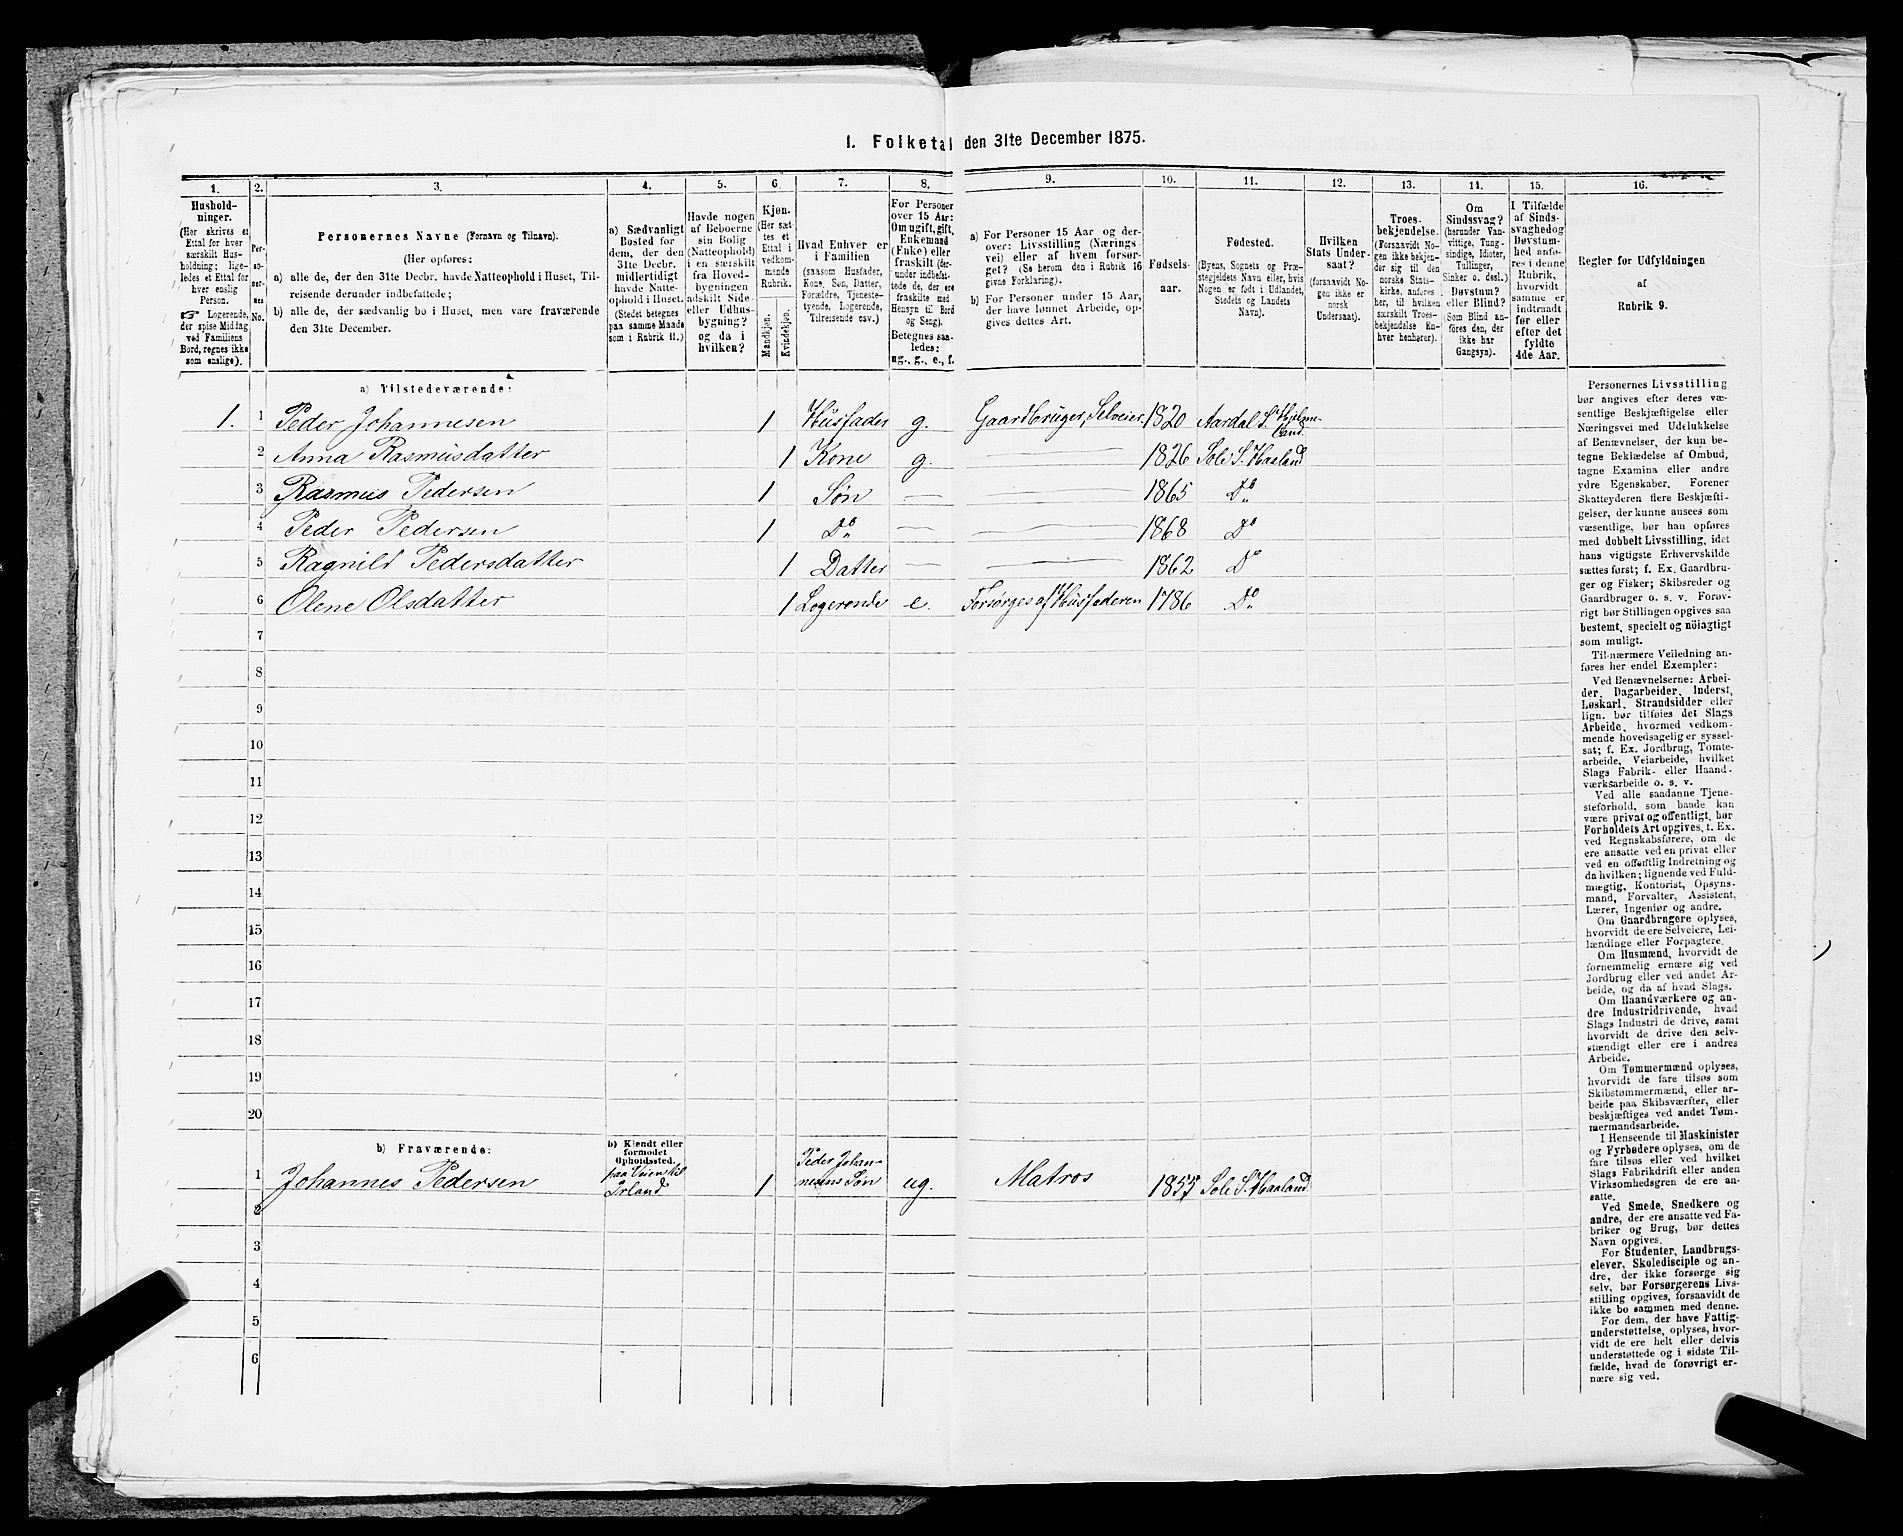 1. Folketal den 31te December 1875.
1. 2. 3. 4. 5. 6. 7. 8. 9. 10. 11. 12. 13. 14. 15. 16.
Hushold-
ninger.
(Her skrives et
Ettal for hver
særskilt Hus-
holdning; lige-
ledes et Ettal for
hver enslig
Person.
☞ Logerende,
der spise Middag
ved Familiens
Bord, regnes ikke
som enslige).
Per-
so-
ner-
nes
No.
Personernes Navne (Fornavn og Tilnavn).
(Her opføres:
a) alle de, der den 31te Decbr. havde Natteophold i Huset, Til-
reisende derunder indbefattede;
b) alle de, der sædvanlig bo i Huset, men vare fraværende
den 31te December.
a) Sædvanligt
Bosted for
dem, der den
31te Decbr.
midlertidigt
havde Natte-
ophold i Huset.
(Stedet betegnes
paa samme Maade
som i Rubrik 11.)
Havde nogen
af Beboerne
sin Bolig
(Natteophold)
i en særskilt
fra Hoved-
bygningen
adskilt Side-
eller Udhus-
bygning?
og da i
hvilken?
Kjøn.
(Her sæt-
tes et
Ettal i
vedkom-
mende
Rubrik.
Mandkjøn.
Kvindekjøn.
Hvad Enhver er
i Familien
(saasom Husfader,
Kone, Søn, Datter,
Forældre, Tjeneste-
tyende, Logerende,
Tilreisende osv.)
For Personer
over 15 Aar:
Om ugift, gift,
Enkemand
(Enke) eller
fraskilt (der-
under indbefat-
tede de, der ere
fraskilte med
Hensyn til Bord
og Seng).
Betegnes saa-
ledes:
ug., g., e., f.
a) For Personer 15 Aar og der-
over: Livsstilling (Nærings
vei) eller af hvem forsør-
get? (Se herom den i Rubrik 16
givne Forklaring).
b) For Personer under 15 Aar,
der have lønnet Arbeide, op-
gives dettes Art.
Fødsels-
aar.
Fødested.
(Byens, Sognets og Præ-
stegjeldets Navn eller, hvis
Nogen er født i Udlandet,
Stedets og Landets
Navn).
Hvilken
Stats Under-
saat?
(forsaavidt No-
gen ikke er
norsk
Undersaat).
Troes-
bekjendelse.
(Forsaavidt No-
gen ikke bekjen-
der sig til den
norske Stats-
kirke, anføres
her, til hvilken
særskilt Troes-
bekjendelse En-
hver henhører).
Om
Sindssvag?
(herunder Van-
vittige, Tung-
sindige, Idioter,
Tullinger,
Sinker o. desl.)
Døvstum?
eller Blind?
(Som Blind an-
føres den, der
ikke har
Gangsyn).
I Tilfælde
af Sinds-
svaghed og
Døvstum-
hed anfø-
res i denne
Rubrik,
hvorvidt
samme er
indtraadt
før eller
efter det
fyldte
4de Aar.
Regler for Udfyldningen
af
Rubrik 9.
a) Tilstedeværende:
1. 1 Peder Johannesen 1 Husfader g. Gaardbruger, Selveier. 1820 Aardal S. Hjelme-
land.
2 Anna Rasmusdatter 1 Kone g. 1826 Sole S. Haaland
3 Rasmus Pedersen 1 Søn — — 1865 Do
4 Peder Pedersen 1 Do — — 1868 Do
5 Ragnild Pedersdatter 1 Datter — — 1862 Do
6 Olene Olsdatter 1 Logerende e. Forsørges af Husfaderen 1786 Do
7
8
9
10
11
12
13
14
15
16
17
18
19
20
b) Fraværende:
b) Kjendt eller
formodet
Opholdssted.
1 Johannes Pedersen paa Veien til
Irland 1 Peder Johan-
nesens Søn ug. Matros 1855 Sole S. Haaland
2
3
4
5
6
Personernes Livsstilling
bør angives efter deres væ-
sentlige Beskjæftigelse eller
Næringsvei med Udelukkelse
af Benævnelser, der kun be-
tegne Beklædelse af Ombud,
tagne Examina eller andre
ydre Egenskaber. Forener
Skatteyderen flere Beskjæfti-
gelser, der kunne ansees som
væsentlige, bør han opføres
med dobbelt Livsstilling, idet
hans vigtigste Erhvervskilde
sættes først; f. Ex. Gaardbru-
ger og Fisker; Skibsreder og
Gaardbruger o. s. v. Forøv-
rigt bør Stillingen opgives saa
bestemt, specielt og nöiagtigt
som muligt.
Til nærmere Veiledning an-
føres her endel Exempler:
Ved Benævnelserne: Arbei-
der, Dagarbeider, Inderst,
Løskarl, Strandsidder eller
lign. bør tilføies det Slags
Arbeide, hvormed vedkom-
mende hovedsagelig er syssel-
sat; f. Ex. Jordbrug, Tomte-
arbeide, Veiarbeide, hvilket
Slags Fabrik- eller Haand-
værksarbeide o. s. v.
Ved alle saadanne Tjene-
steforhold, som baade kan
være privat og offentligt, bør
Forholdets Art opgives, t. Ex.
ved Regnskabsførere, om de
ere ansatte ved en privat eller
ved en offentlig Indretning og
da hvilken; lignende ved Fuld-
mægtig, Kontorist, Opsyns-
mand, Forvalter, Assistent,
Lærer, Ingeniør og andre.
Om Gaardbrugere oplyses,
hvorvidt de ere Selveiere, Lei-
lændinge eller Forpagtere.
Om Husmænd, hvorvidt de
fornemmelig ernære sig ved
Jordbrug eller ved andet Ar-
beide, og da af hvad Slags.
Om Haandværkere og an-
dre Industridrivende, hvad
Slags Industri de drive, samt
hvorvidt de drive den selv-
stændigt eller ere i andres
Arbeide.
Om Tømmermænd oplyses,
hvorvidt de fare tilsøs som
Skibstømmermænd, eller ar-
beide paa Skibsværfter, eller
beskjæftiges ved andet Tøm-
mermandsarbeide.
I Henseende til Maskinister
og Fyrbødere oplyses, om de
fare tilsøs eller ved hvilket
Slags Fabrikdrift eller anden
Virksomhedsgren de ere an-
satte.
Ved Smede, Snedkere og
andre, der ere ansatte ved Fa-
briker og Brug, bør dettes
Navn opgives.
For Studenter, Landbrugs-
elever, Skoledisciple og an-
dre, der ikke forsørge sig
selv, bør Forsørgerens Livs-
stilling opgives, forsaavidt de
ikke bo sammen med denne.
For dem, der have Fattig-
understøttelse, oplyses, hvor-
vidt de ere helt eller delvis
understøttede og i sidste Til-
fælde, hvad de forøvrigt er-
nære sig ved.